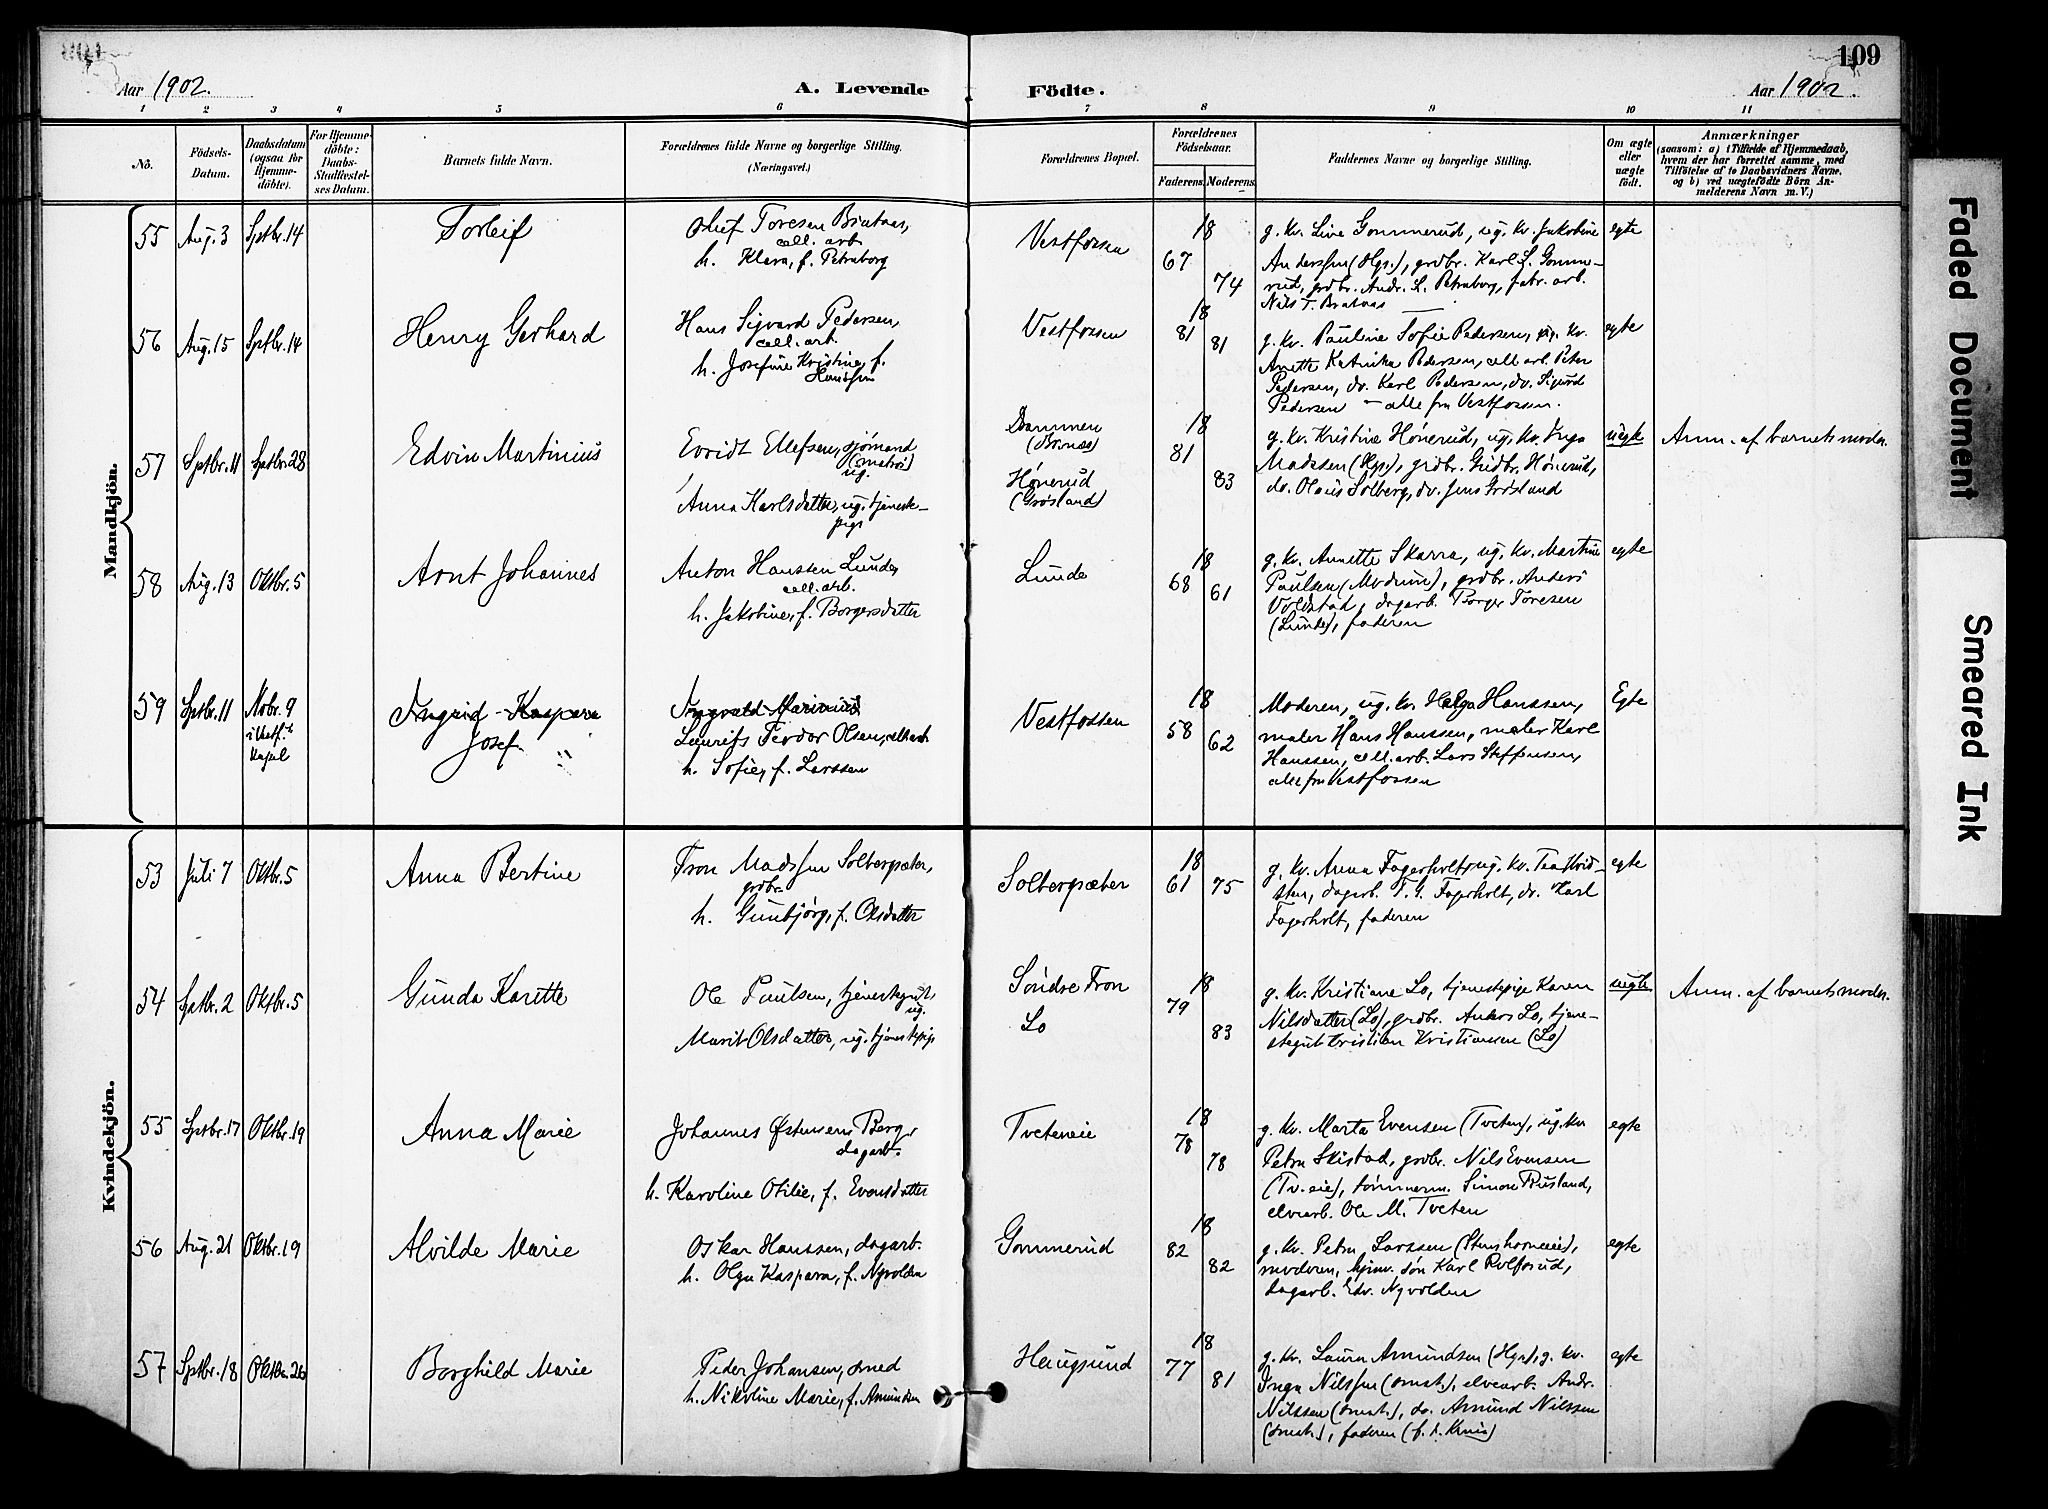 109
Aar 1902.
A. Levende Födte.
Aar 1902.
1 2 3 4 5 6 7 8 9 10 11
No.
Födsels-Datum.
Daabsdatum (ogsaa for Hjemmedöbte).
For Hjemmedöbte: Daabs-Stadfæstelses Datum.
Barnets fulde Navn.
Forældrenes fulde Navne og borgerlige Stilling. (Næringsvei.)
Forældrenes Bopæl.
Forældrenes Födselsaar.
Faderens. Moderens.
Faddernes Navne og borgerlige Stilling.
Om ægte eller uægte födt.
Anmærkninger
(saasom: a) Tilfælde af Hjemmedaab,
hvem der har forrettet samme, med
Tilföielse af to Daabsvidners Navne.
og b) ved uægtefödte Börn Anmelderens Navn m. V.)
Mandkjön.
55 Aug. 3 Septbr. 14 Torleif
Oluf Toresen Brataas,
cell. arb.
h. Klara, f. Petraborg
Vestfossen
18 67 74
g. kv. Live Gommerud, ug. kv. Jakobine
Anderssen (Hgs.), grdbr. Karl L. Gomme-
rud, grdbr. Andr. L. Petraborg, fabr. arb.
Nils T. Brataas
egte
56 Aug. 15 Septbr. 14 Henry Gerhard
Hans Sigvard Pedersen,
cell. arb.
h. Josefine Kristine, f.
Vestfossen
18 81 81
g. kv. Pauline Sofie Pedersen, ug. kv.
Anette Katrinka Pedersen, cell. arb. Peter
Pedersen, do. Karl Pedersen, do. Sigurd
Pedersen — alle fra Vestfossen.
egte
57 Septbr. 11 Septbr. 28 Edvin Martinius
Evridt Ellefsen, sjømand
ug.
Anna Karlsdatter, ug. tjeneste-
pige
Drammen
(Bragernæs)
Hønerud
(Grøsland)
18 81 83
g. kv. Kristine Hønerud, ug. kv. Inga
Madssen (Hgs.), grdbr. Gudbr. Hønerud,
do. Olaus Solberg, do. Jens Grøsland
uegte
Anm. af barnets moder.
58 Aug. 13 Oktbr. 5 Arnt Johannes
Anton Hanssen Lunde,
cell. arb.
h. Jakobine, f. Borgersdatter
Lunde
18 68 61
g. kv. Annette Skarra, ug. kv. Martine
Paulsen (Modum), grdbr. Anders
Voldstad, dagarb. Borger Toresen
(Lunde), faderen
egte
59 Septbr. 11 Novbr. 9
i Vestf.
kapel
Ingrid Kaspara
Josef
Ingvald Marinius
Laurits Teodor Olsen, cell. arb.
h. Sofie, f. Larssen
Vestfossen
18 58 62
Moderen, ug. kv. Helga Hanssen,
maler Hans Hanssen, maler Karl
Hanssen, cell. arb. Lars Steffensen,
alle fra Vestfossen
Egte
Kvindekjön.
53 Juli 7 Oktbr. 5 Anna Bertine
Tron Madssen Solbergsæter,
grdbr.
h. Gunbjørg, f. Olsdatter
Solbergsæter
18 61 75
g. kv. Anna Fagerholt, ug. kv. Tea Krid-
sten, dagarb. T. G. Fagerholt, do. Karl
Fagerholt, faderen
egte
54 Septbr. 2 Oktbr. 5 Gunda Karitte
Ole Paulsen, tjenestegut,
ug.
Marit Olsdatter, ug. tjenestepige
Søndre Fron
Lo
18 79 83
g. kv. Kristiane Lo, tjenestepige Karen
Nilsdatter (Lo), grdbr. Anders Lo, tjene-
stegut Kristian Kristiansen (Lo)
uegte
Anm. af barnets moder.
55 Septbr. 17 Oktbr. 19 Anna Marie
Johannes Østensen Berg,
dagarb.
h. Karoline Otilie, f. Evensdatter
Tveteneie
18 78 78
g. kv. Marta Evensen (Tveten), ug. kv.
Petra Skistad, grdbr. Nils Evensen
(Tv. eie), tømmerm. Simon Rusland,
elvearb. Ole M. Tveten
egte
56 Aug. 21 Oktbr. 19 Alvilde Marie
Oskar Hanssen, dagarb.
h. Olga Kaspara, f. Nyvolden
Gommerud
18 82 82
g. kv. Petra Larssen (Stenshorneie),
moderen, hjmv. søn Karl Rolfsrud,
dagarb. Edv. Nyvolden
egte
57 Septbr. 18 Oktbr. 26 Borghild Marie
Peder Johansen, smed
h. Nikoline Marie, f. Amundsen
Haugsund
18 77 81
g. kv. Laura Amundsen (Hgs), g. kv.
Inga Nilssen (smst.), elvearb. Andr.
Nilssen (smst.), do. Amund Nilssen
(smst.), faderen
egte
Faded Document
Smeared Ink